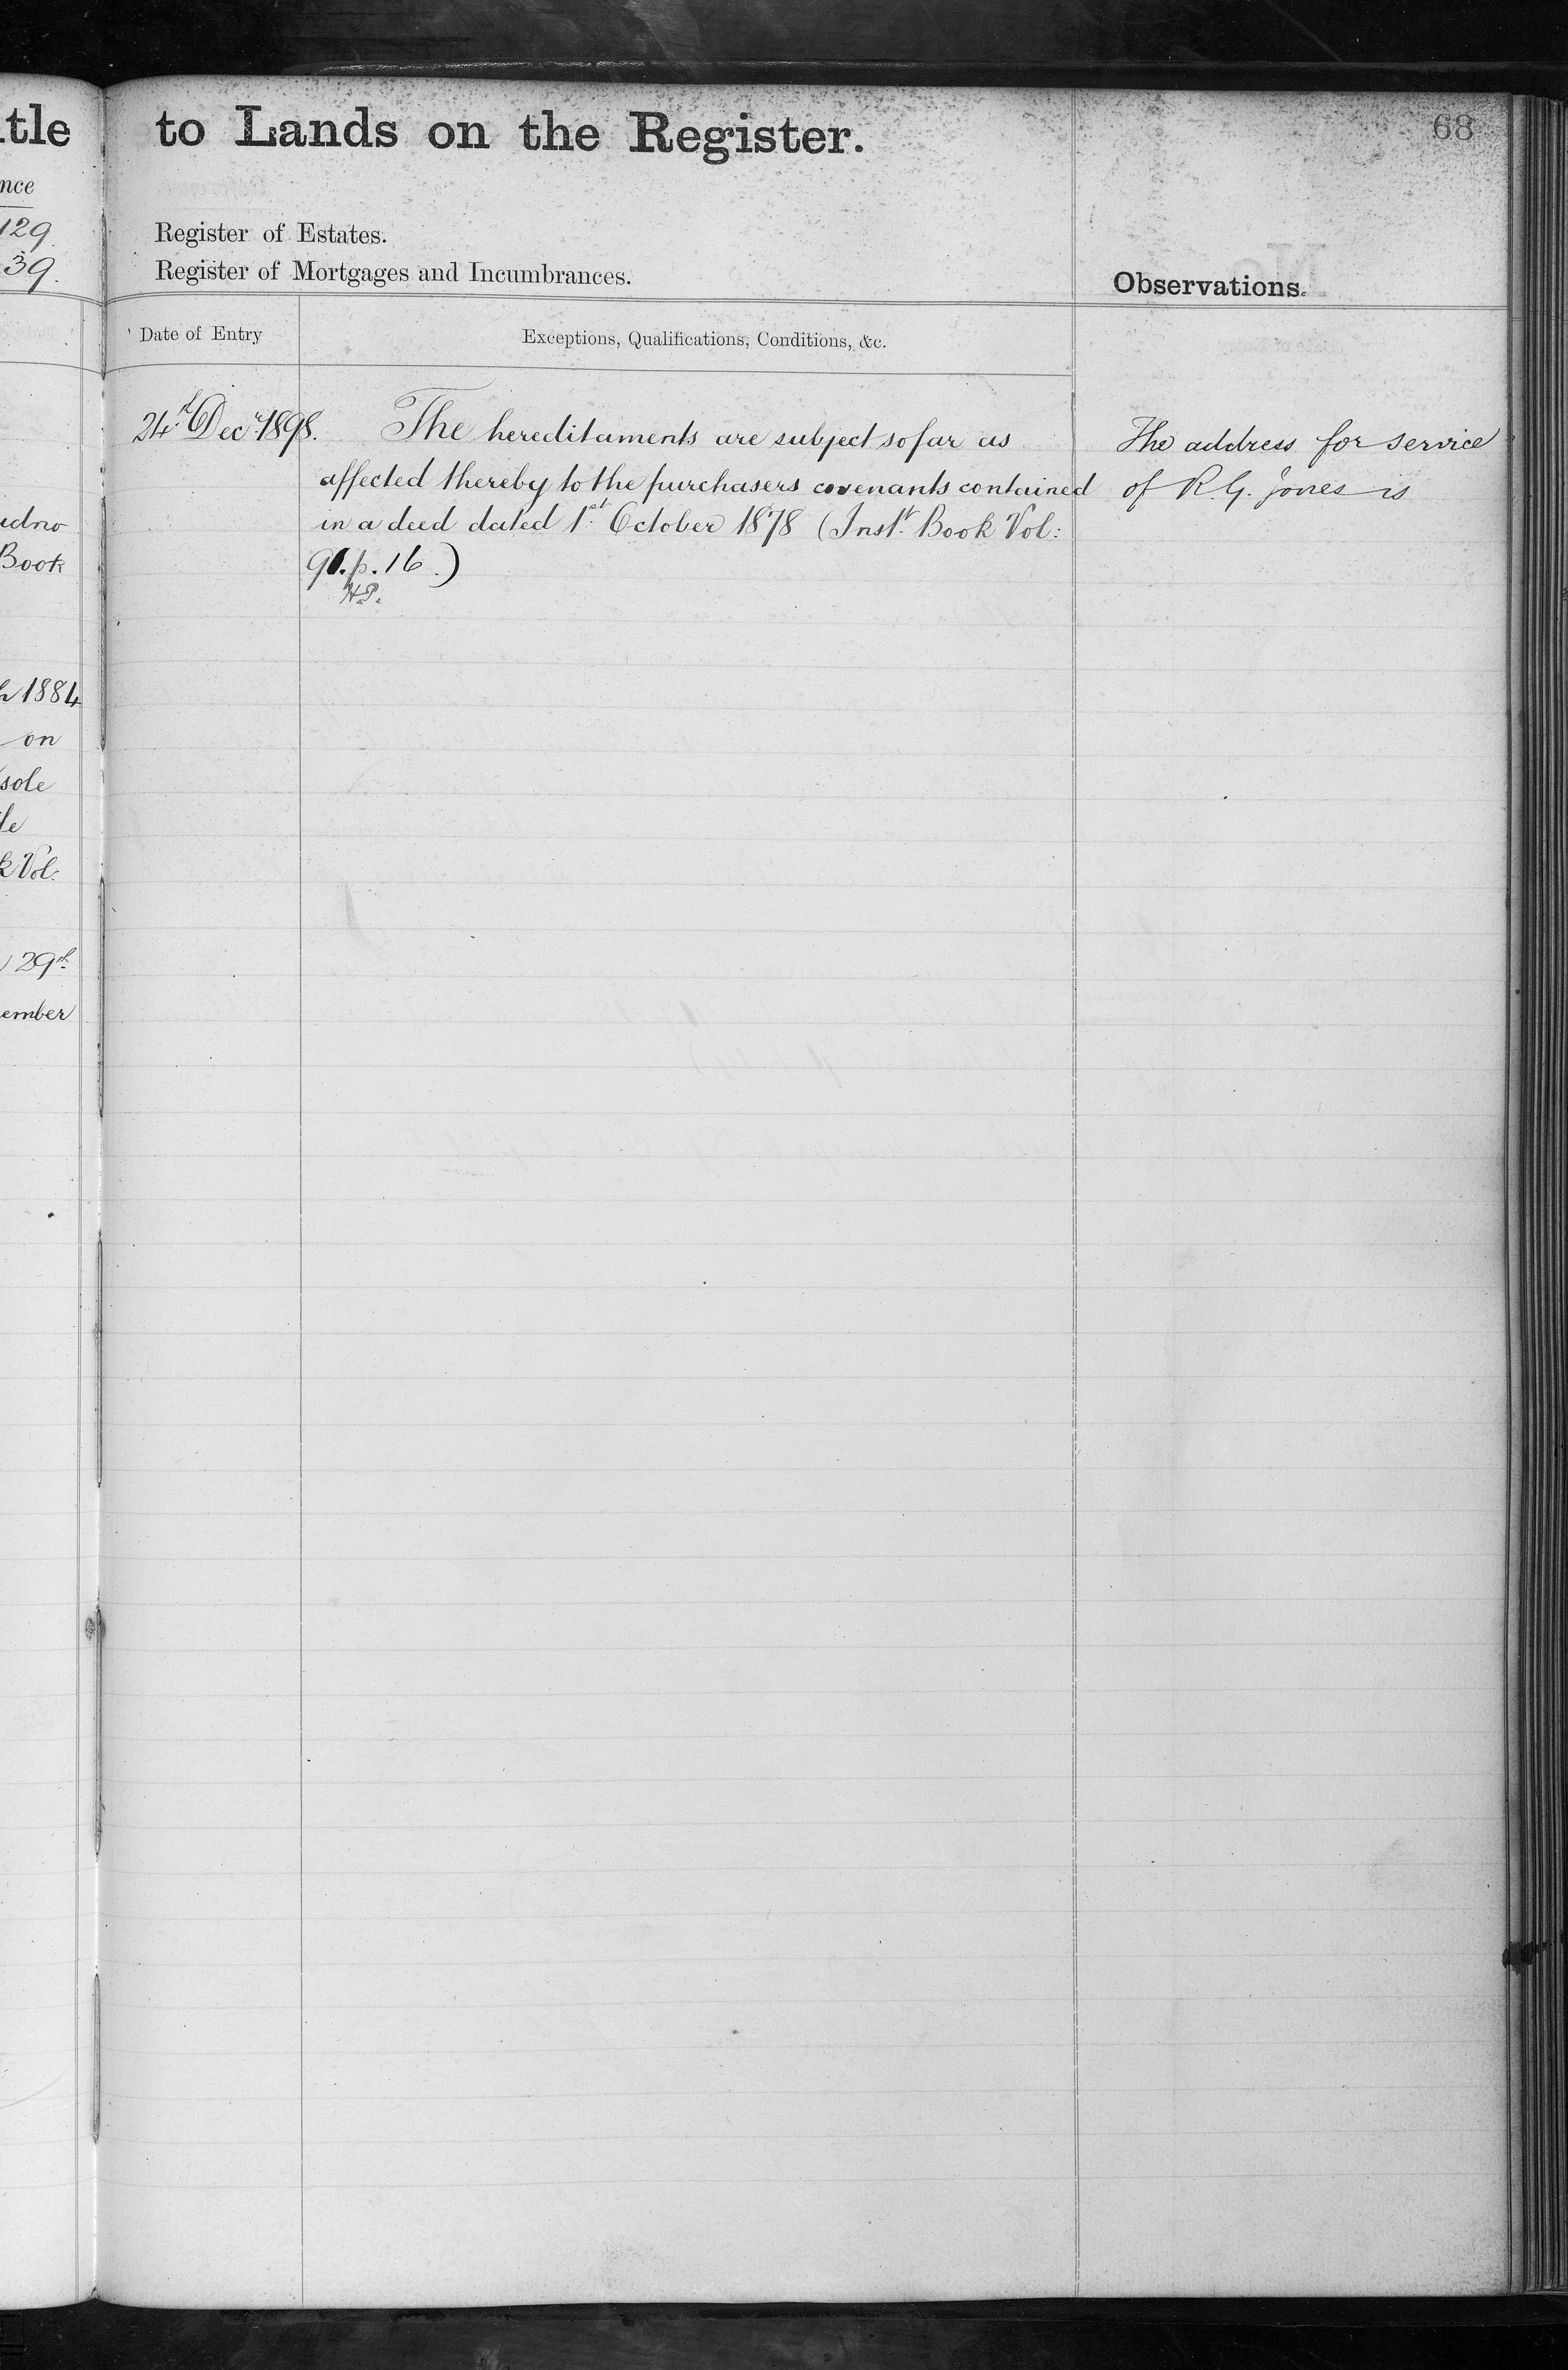 tle
nce
129.
39.
Book
1884
on
sole
Vol:
29th
ember
to Lands on the Register.
68
Register of Estates.
Register of Mortgages and Incumbrances.
Observations.
Date of Entry
Exceptions, Qualifications, Conditions, &c.
24th Decr 1898.
The hereditaments are subject so far as
affected thereby to the purchasers covenants contained
in a deed dated 1st October 1878 (Instt Book Vol:
p. 16.)
H.P.
The address for service
of R. G. Jones is